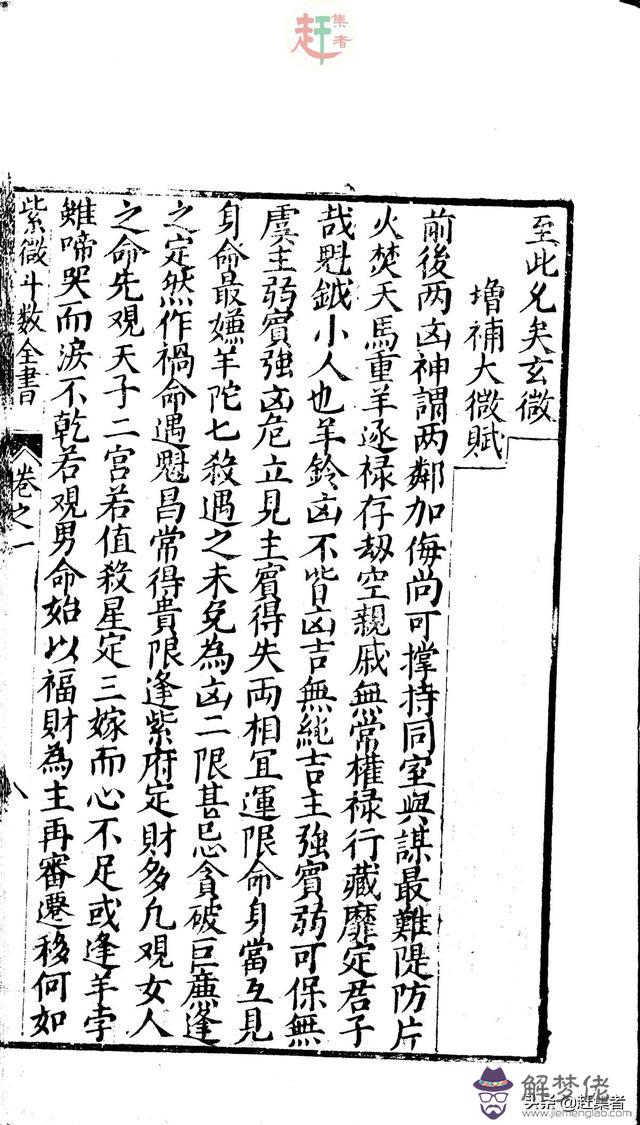 赶集者
至此允矣玄微
增補太微賦
前後两凶神謂两鄰加侮尚可撑持同室與謀最難隄防片
火焚天馬重羊逐禄存劫空親戚無常權禄行藏靡定君子
哉魁鉞小人也羊鈴凶不皆凶吉無純吉主強賓弱可保無
虞主弱賓強凶危立見主賓得失两相宜運限命身當互見
身命最嫌羊陀七殺遇之未免為凶二限甚忌貪破巨廉逢
之定然作禍命遇魁昌常得貴限逢紫府定財多凢觀女人
之命先觀天子二宮若值殺星定三嫁而心不足或逢羊孛
雖啼哭而淚不乾若觀男命始以福財為主再審遷移何如
紫微斗数全書
卷之一
解梦佬
www.jiemenglao.com
头条@赶集者